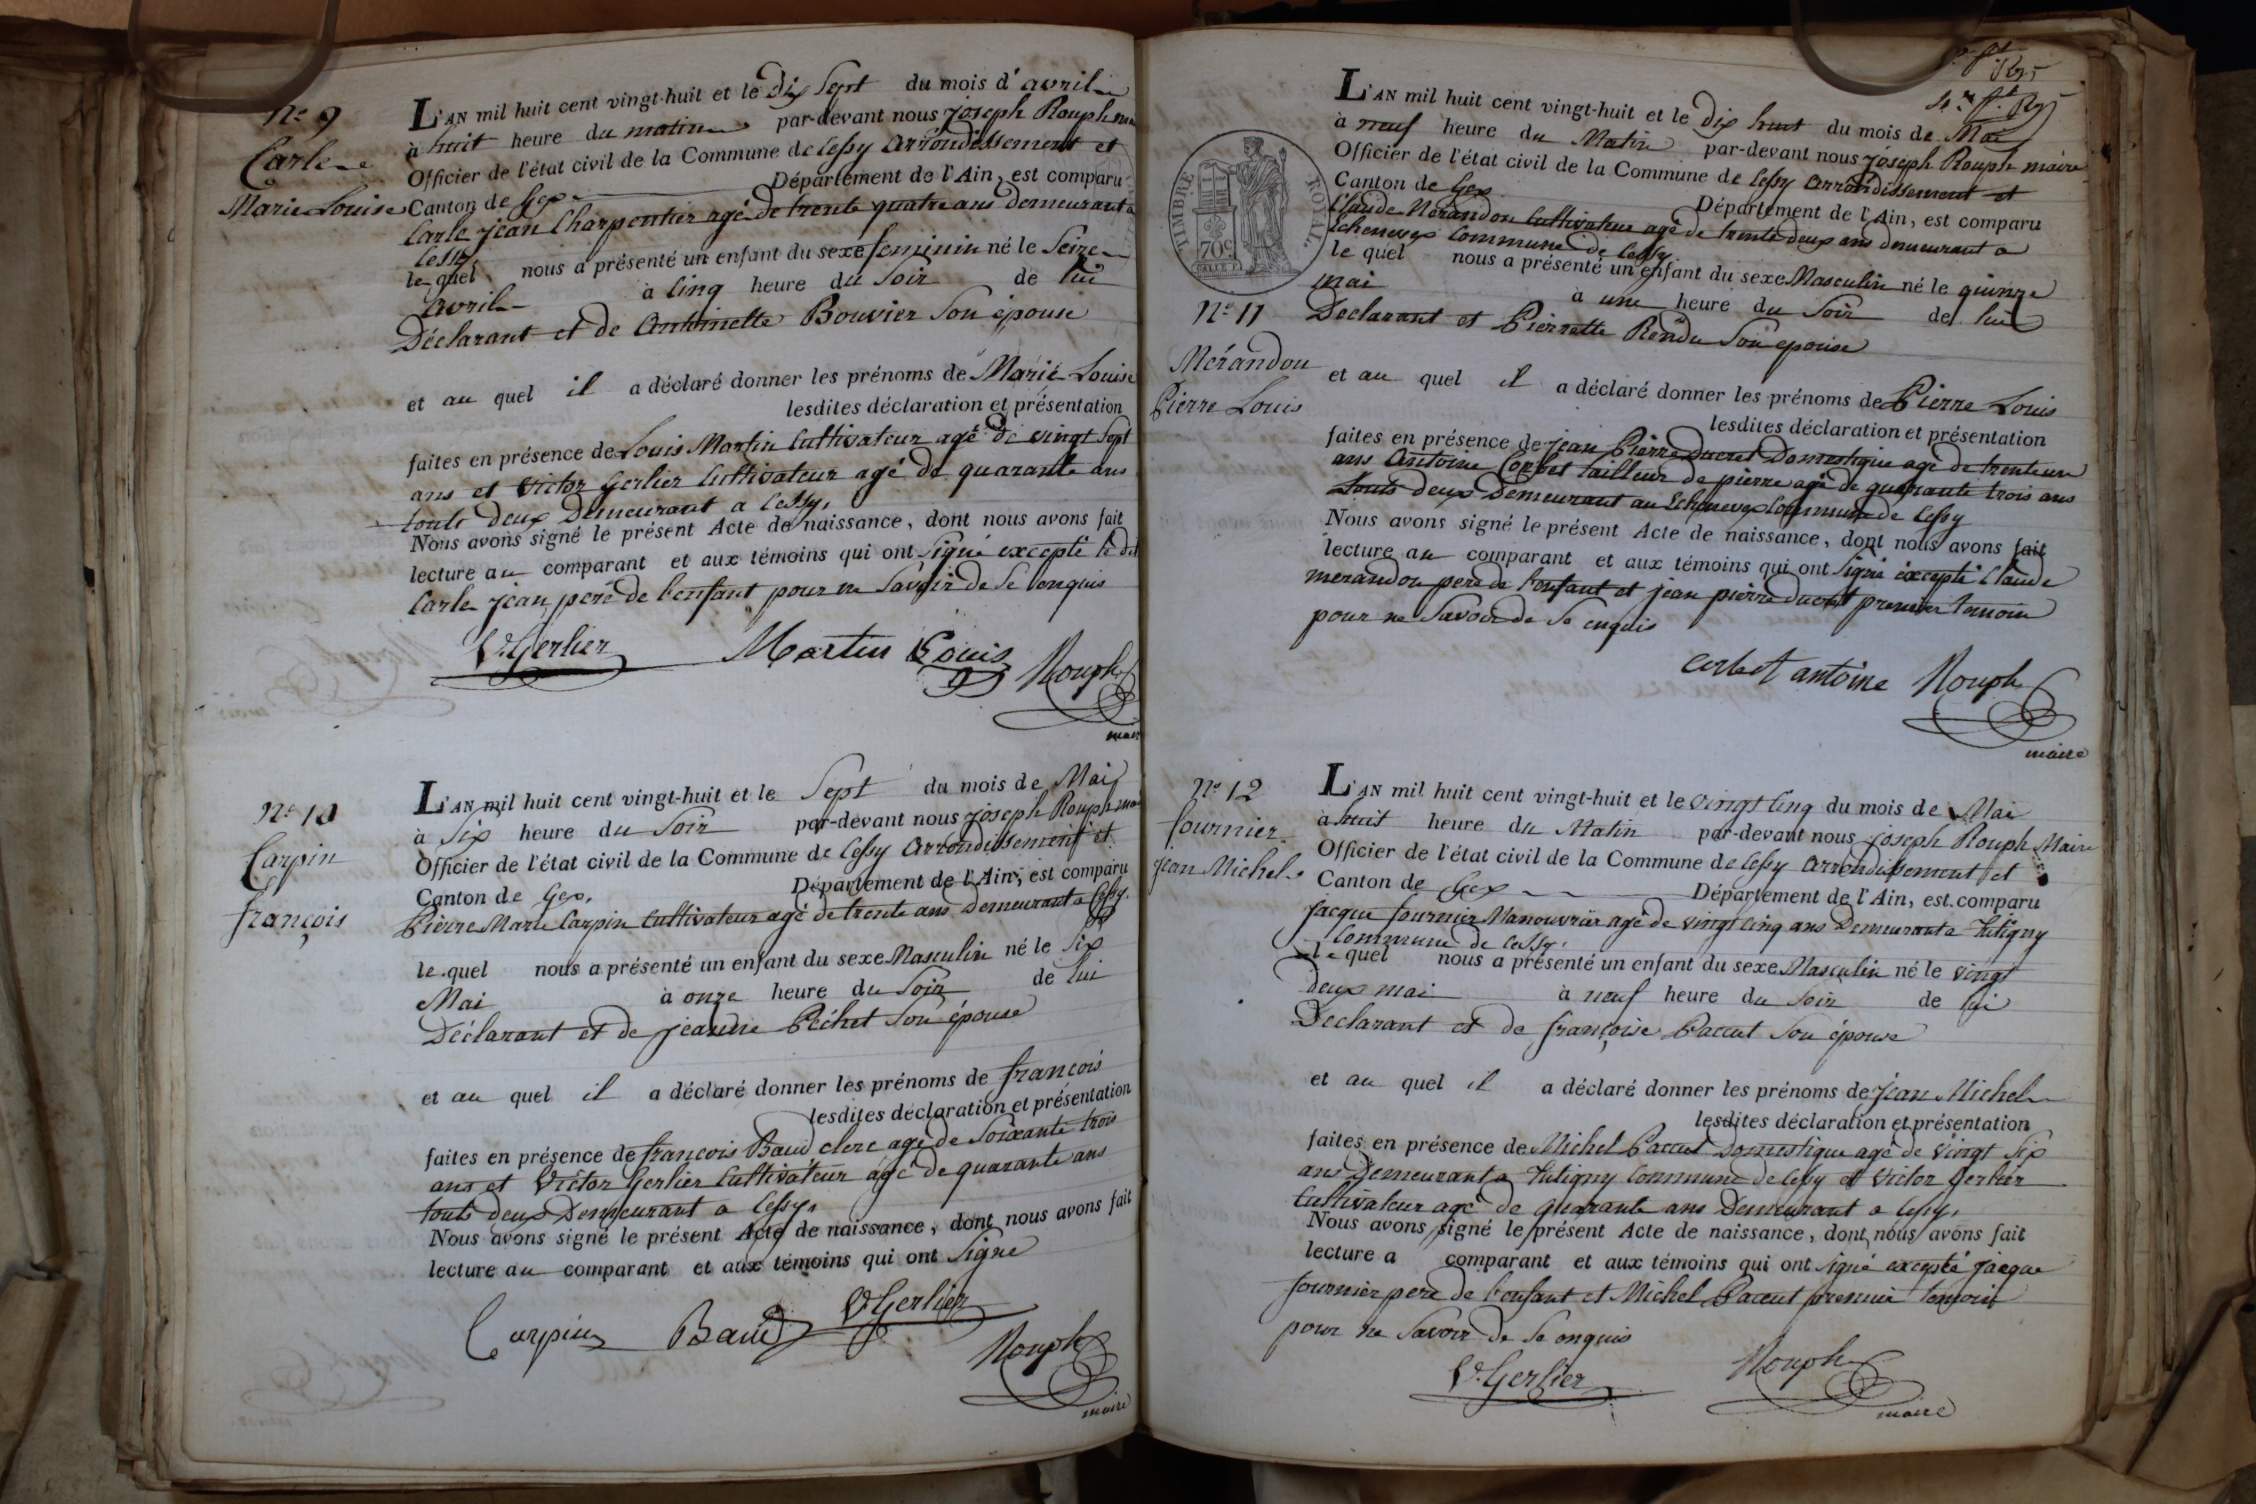 N.° 9
Carle
Marie Louise
L'AN mil huit cent vingt-huit et le Dix Sept du mois d'avril
à huit heure du matin par-devant nous joseph Rouph
Officier de l'état civil de la Commune de Cessy Arrondissement et
Canton de Gex Département de l'Ain, est comparu
Carle jean Charpentier agé de trente quatre ans demeurant a
Cessy
le quel nous a présenté un enfant du sexe feminin né le Seize
avril à Cinq heure du Soir de lui
Déclarant et de Antoinette Bouvier Son épouse
et au quel il a déclaré donner les prénoms de Marie Louise
lesdites déclaration et présentation
faites en présence de Louis Martin Cultivateur agé de vingt Sept
ans et Victor Gerlier Cultivateur agé de quarante ans
touts deux Demeurant a Cessy,
Nous avons signé le présent Acte de naissance, dont nous avons fait
lecture au comparant et aux témoins qui ont Signé excepté le dit
Carle jean peré de l'enfant pour ne Savoir de Se enquis
V. Gerlier Martin Louis Rouph
maire
N.° 10
Carpin
françois
L'AN mil huit cent vingt-huit et le Sept du mois de Mai
à Six heure du Soir par-devant nous joseph Rouph
Officier de l'état civil de la Commune de Cessy Arrondissement et
Canton de Gex, Département de l'Ain, est comparu
Pierre Marie Carpin Cultivateur agé de trente ans Demeurant a Cessy
le quel nous a présenté un enfant du sexe Masculin né le Six
Mai à onze heure du Soir de lui
Déclarant et de jeanne Péchet Son épouse
et au quel il a déclaré donner les prénoms de françois
lesdites déclaration et présentation
faites en présence de françois Baud clerc agé de Soixante trois
ans et Victor Gerlier Cultivateur agé de quarante ans
touts deux Demeurant a Cessy,
Nous avons signé le présent Acte de naissance, dont nous avons fait
lecture au comparant et aux témoins qui ont Signé
Carpin Baud V. Gerlier
Rouph
maire
TIMBRE ROYAL
70 c
N.° 11
Mérandon
Pierre Louis
L'AN mil huit cent vingt-huit et le dix huit du mois de Mai
à neuf heure du Matin par-devant nous joseph Rouph maire
Officier de l'état civil de la Commune de Cessy Arrondissement et
Canton de Gex Département de l'Ain, est comparu
Claude Mérandon Cultivateur agé de trente deux ans demeurant a
Echenevex Commune de Cessy
le quel nous a présenté un enfant du sexe Masculin né le quinze
mai à une heure du Soir de lui
Declarant et Pierrette Rendu Son épouse
et au quel il a déclaré donner les prénoms de Pierre Louis
lesdites déclaration et présentation
faites en présence de jean Pierre Ducret Domestique agé de trente un
ans Antoine Corbet tailleur de pierre agé de quarante trois ans
touts deux Demeurant au Echenevex Commune de Cessy
Nous avons signé le présent Acte de naissance, dont nous avons fait
lecture au comparant et aux témoins qui ont Signé excepté Claude
merandon pere de l'enfant et jean pierre ducret premier temoin
pour ne Savoir de Se enquis
corbet antoine Rouph
maire
N.° 12
fournier
jean Michel
L'AN mil huit cent vingt-huit et le vingt Cinq du mois de Mai
à huit heure du Matin par-devant nous joseph Rouph Maire
Officier de l'état civil de la Commune de Cessy Arrondissement et
Canton de Gex Département de l'Ain, est comparu
jacque fournier Manouvrier agé de vingt Cinq ans Demeurant a Tutigny
Commune de Cessy,
le quel nous a présenté un enfant du sexe Masculin né le vingt
deux mai à neuf heure du Soir de lui
Declarant et de françoise Paccut Son épouse
et au quel il a déclaré donner les prénoms de jean Michel
lesdites déclaration et présentation
faites en présence de Michel Paccut Domestique agé de vingt Six
ans Demeurant a Tutigny Commune de Cessy et Victor Gerlier
Cultivateur agé de quarante ans Demeurant a Cessy,
Nous avons signé le présent Acte de naissance, dont nous avons fait
lecture a comparant et aux témoins qui ont signé excepté jacque
fournier pere de l'enfant et Michel Paccut premier temoin
pour ne Savoir de Se enquis
V. Gerlier Rouph
maire